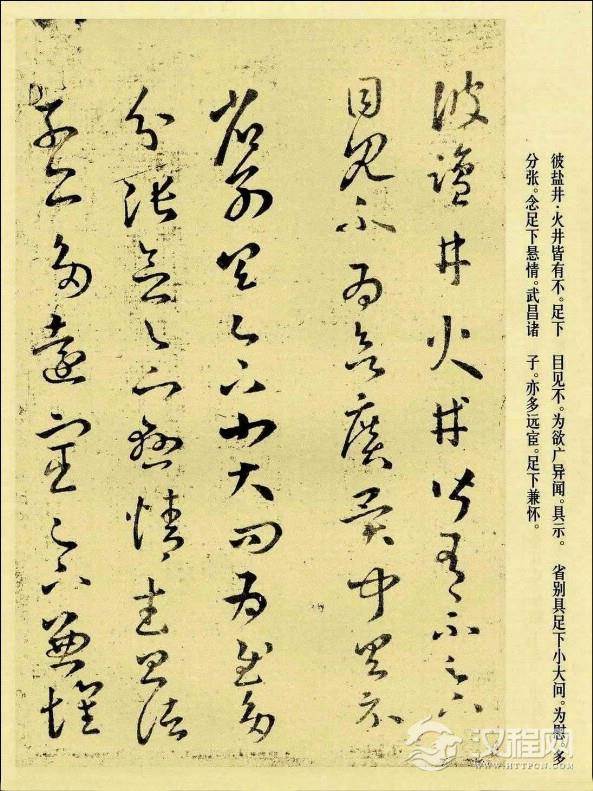 彼盐井·火井皆有不。足下 目见不。为欲广异闻。具示。 省别具足下小大问。为慰 多
分张。念足下悬情。武昌诸 子。亦多远宦。足下兼怀。
彼鹽井火井皆有不足下
目見不為欲廣異聞具示
省別具足下小大問為慰多
分張念足下懸情武昌諸
子亦多遠宦足下兼懷
汉程网
WWW.HTTPCN.COM